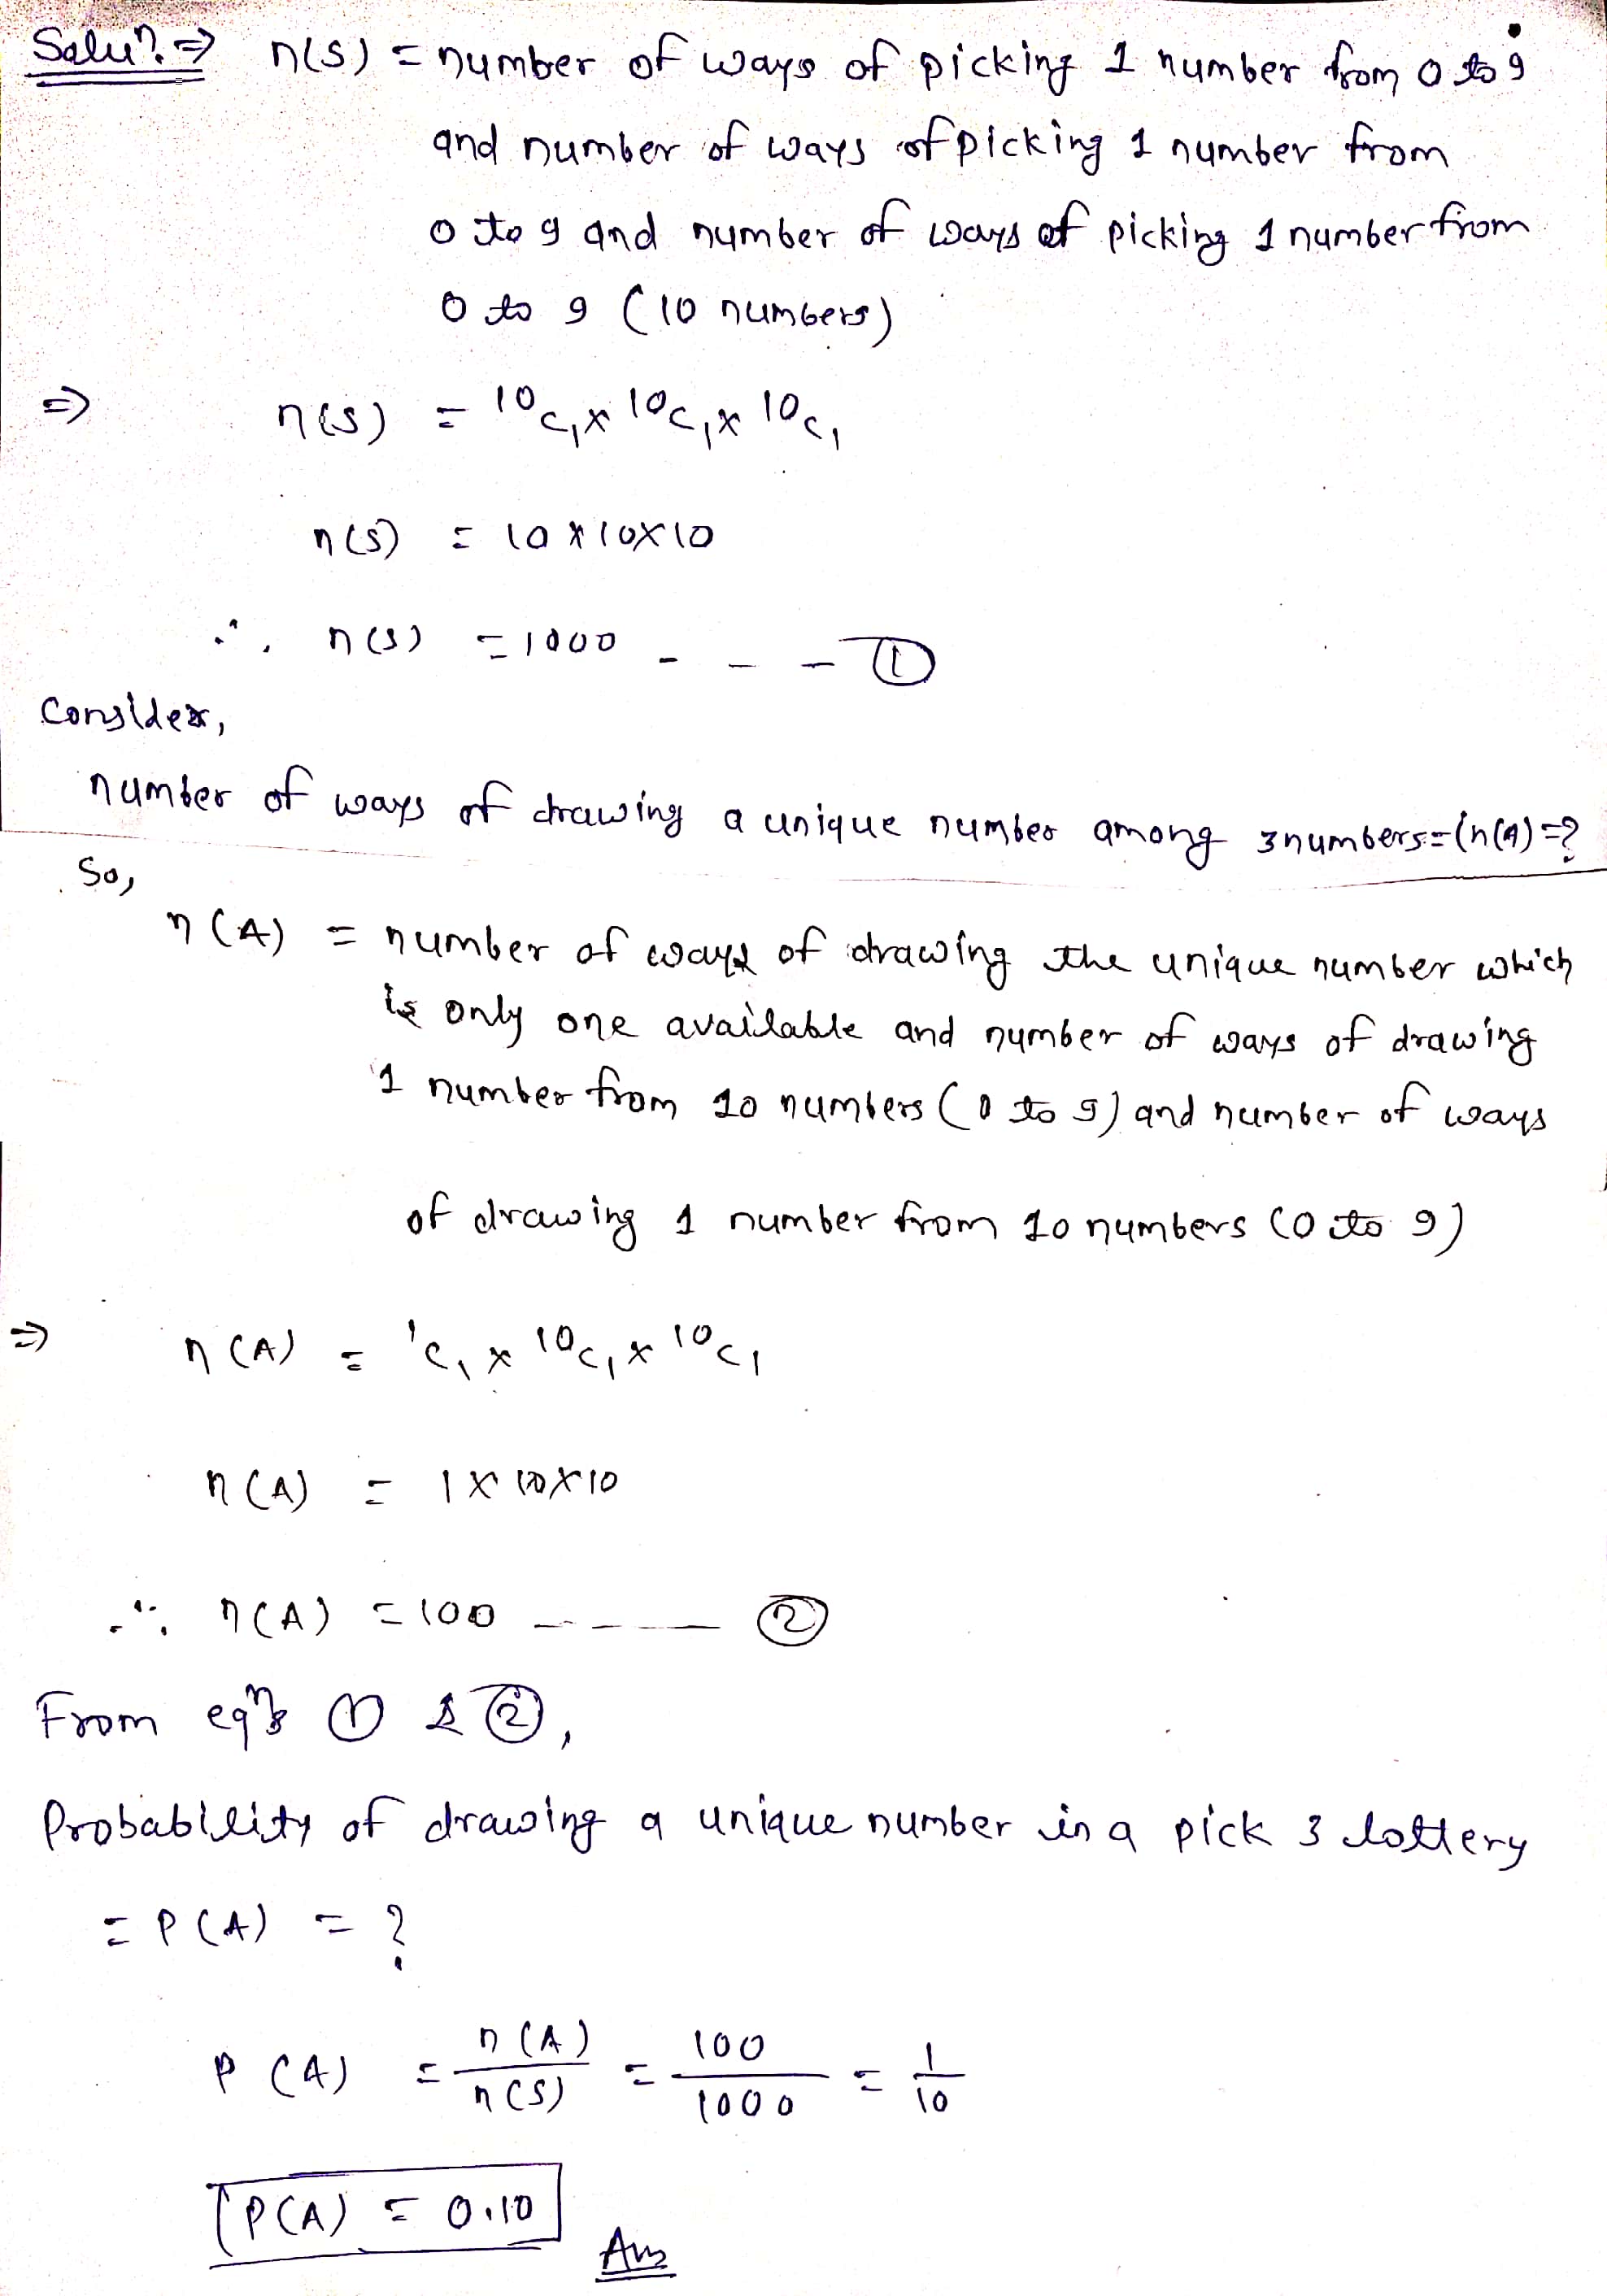 Solun. ⇒ n(S) = number of ways of picking 1 number from 0 to 9
and number of ways of picking 1 number from
0 to 9 and number of ways of picking 1 number from
0 to 9 (10 numbers)
⇒ n(S) = ¹⁰C₁ × ¹⁰C₁ × ¹⁰C₁
n(S) = 10 × 10 × 10
∴ n(S) = 1000 - - - ①
Consider,
number of ways of drawing a unique number among 3 numbers = (n(A) = ?
So,
n(A) = number of ways of drawing the unique number which
is only one available and number of ways of drawing
1 number from 10 numbers (0 to 9) and number of ways
of drawing 1 number from 10 numbers (0 to 9)
⇒ n(A) = ¹C₁ × ¹⁰C₁ × ¹⁰C₁
n(A) = 1 × 10 × 10
∴ n(A) = 100 - - - - ②
From eqns ① & ②,
Probability of drawing a unique number in a pick 3 lottery
= P(A) = ?
P(A) = n(A)/n(S) = 100/1000 = 1/10
P(A) = 0.10 Ans